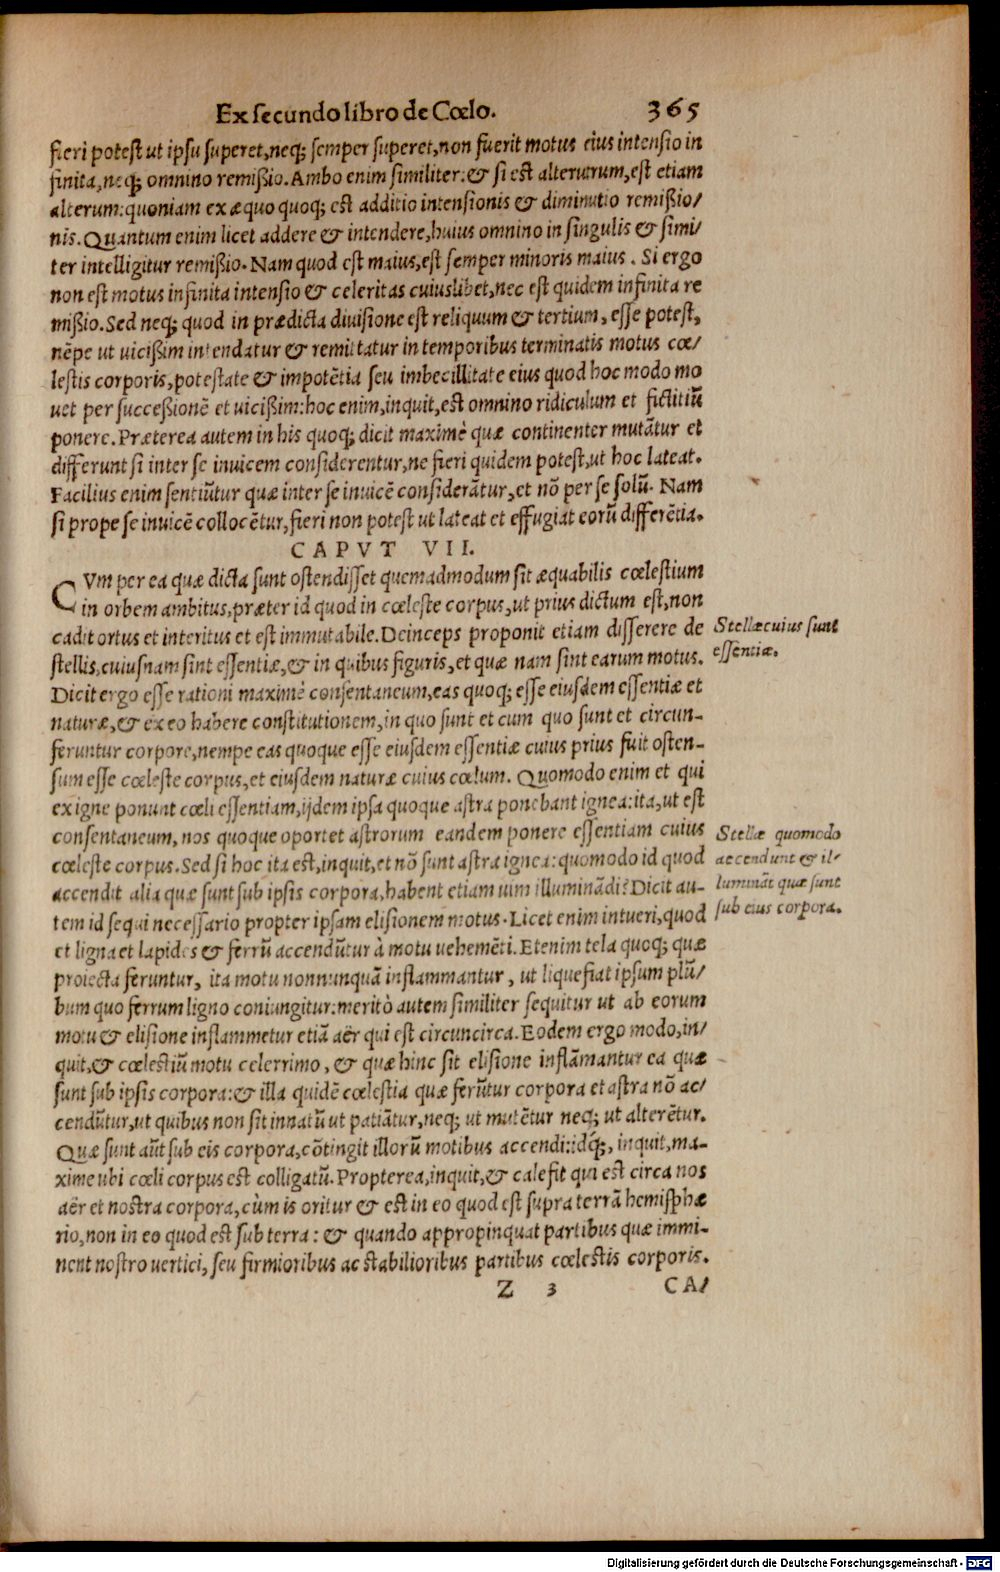 Ex secundo libro de Cœlo. 365
fieri potest ut ipsu superet, neq; semper superet, non fuerit motus eius intensio in
finita, neq; omnino remißio. Ambo enim similiter: & si est alterutrum, est etiam
alterum: quoniam ex æquo quoq; est additio intensionis & diminutio remißio/
nis. Quantum enim licet addere & intendere, huius omnino in singulis & simi/
ter intelligitur remißio. Nam quod est maius, est semper minoris maius. Si ergo
non est motus infinita intensio & celeritas cuiuslibet, nec est quidem infinita re
mißio. Sed neq; quod in prædicta diuisione est reliquum & tertium, esse potest,
nẽpe ut uicißim intendatur & remittatur in temporibus terminatis motus cœ/
lestis corporis, potestate & impotẽtia seu imbecillitate eius quod hoc modo mo
uet per succeßionẽ et uicißim: hoc enim, inquit, est omnino ridiculum et fictitiũ
ponere. Præterea autem in his quoq; dicit maximè quæ continenter mutãtur et
differunt si inter se inuicem considerentur, ne fieri quidem potest, ut hoc lateat.
Facilius enim sentiũtur quæ inter se inuicẽ considerãtur, et nõ per se solũ. Nam
si prope se inuicẽ collocẽtur, fieri non potest ut lateat et effugiat eorũ differẽtia.
CAPVT VII.
CVm per ea quæ dicta sunt ostendisset quemadmodum sit æquabilis cœlestium
in orbem ambitus, præter id quod in cœleste corpus, ut prius dictum est, non
cadit ortus et interitus et est immutabile. Deinceps proponit etiam disserere de
stellis, cuiusnam sint essentiæ, & in quibus figuris, et quæ nam sint earum motus.
Dicit ergo esse rationi maximè consentaneum, eas quoq; esse eiusdem essentiæ et
naturæ, & ex eo habere constitutionem, in quo sunt et cum quo sunt et circun-
feruntur corpore, nempe eas quoque esse eiusdem essentiæ cuius prius fuit osten-
sum esse cœleste corpus, et eiusdem naturæ cuius cœlum. Quomodo enim et qui
ex igne ponunt cœli essentiam, ijdem ipsa quoque astra ponebant ignea: ita, ut est
consentaneum, nos quoque oportet astrorum eandem ponere essentiam cuius
cœleste corpus. Sed si hoc ita est, inquit, et nõ sunt astra ignea: quomodo id quod
accendit alia quæ sunt sub ipsis corpora, habent etiam uim illuminãdi? Dicit au-
tem id sequi necessario propter ipsam elisionem motus. Licet enim intueri, quod
et ligna et lapides & ferrũ accendũtur à motu uehemẽti. Etenim tela quoq; quæ
proiecta feruntur, ita motu nonnunquã inflammantur, ut liquefiat ipsum plũ/
bum quo ferrum ligno coniungitur: meritò autem similiter sequitur ut ab eorum
motu & elisione inflammetur etiã aër qui est circuncirca. Eodem ergo modo, in/
quit, & cœlestiũ motu celerrimo, & quæ hinc sit elisione inflãmantur ea quæ
sunt sub ipsis corpora: & illa quidẽ cœlestia quæ ferũtur corpora et astra nõ ac/
cendũtur, ut quibus non sit innatũ ut patiãtur, neq; ut mutẽtur neq; ut alterẽtur.
Quæ sunt aũt sub eis corpora, cõtingit illorũ motibus accendi: idq́;, inquit, ma-
xime ubi cœli corpus est colligatũ. Propterea, inquit, & calefit qui est circa nos
aër et nostra corpora, cùm is oritur & est in eo quod est supra terrã hemisphæ
rio, non in eo quod est sub terra: & quando appropinquat partibus quæ immi-
nent nostro uertici, seu firmioribus ac stabilioribus partibus cœlestis corporis.
Z 3 CA/
Stellæ cuius sunt
essentiæ.
Stellæ quomodo
accendunt & il/
luminãt quæ sunt
sub eius corpora.
Digitalisierung gefördert durch die Deutsche Forschungsgemeinschaft - DFG